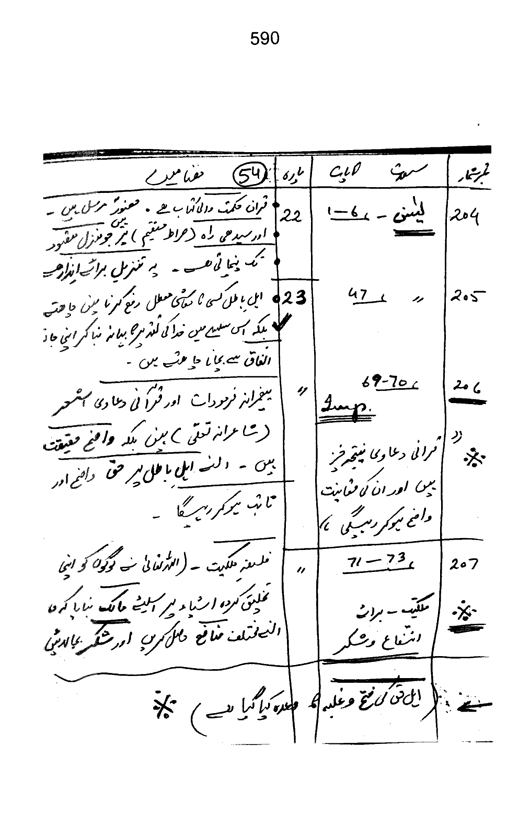 590
نمبر شمار سورت آیات پارہ (54) مضامین
204 یٰسٓ - 1–6 22 قرآن حکمت والی کتاب ہے۔ حضورؐ مرسل ہیں۔
اور سیدھی راہ (صراط مستقیم) پر ہیں جو منزل مقصود
تک پہنچاتی ہے۔ یہ تنزیل برائے انذار ہے
205 〃 47 23 اہل باطل کسی کا معاشی تعطل رفع کرنا نہیں چاہتے
بلکہ اس سلسلے میں خدا کی تقدیر کا بہانہ بنا کر اپنی جان
انفاق سے بچانا چاہتے ہیں۔
206 69–70 〃 پیغمبرانہ فرمودات اور قرآنی دعاوی اشعار
Imp. (شاعرانہ تعلی) نہیں بلکہ واضح حقیقت
〃 قرآنی دعاوی نتیجہ خیز ہیں۔ اہل باطل پر حق واضح اور
ہیں اور ان کی حقانیت ثابت ہو کر رہیگا۔
واضح ہو کر رہیگی
207 71–73 〃 فلسفہ ملکیت - (اللہ تعالیٰ نے لوگوں کو اپنی
ملکیت - برائے تخلیق کردہ اشیاء پر اسلئے مالک بنایا کہ وہ
انتفاع و شکر ان سے مختلف منافع حاصل کریں اور شکر بجا لائیں
(اہل حق کی فتح و غلبہ کا وعدہ کیا گیا ہے)